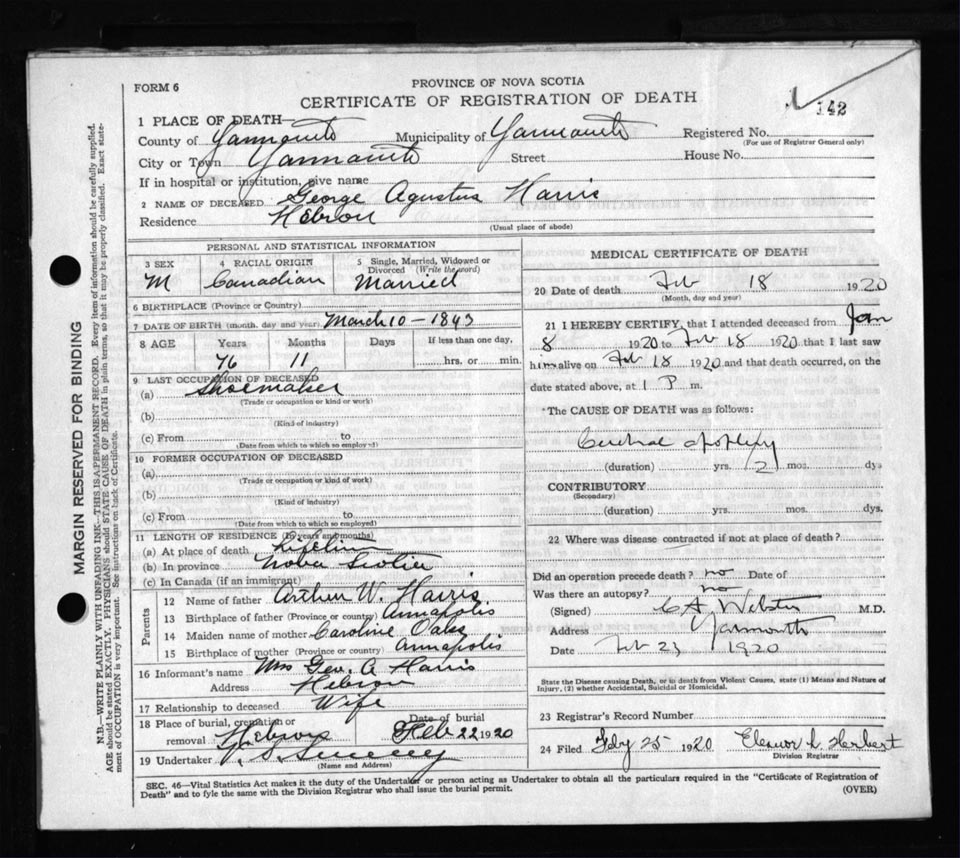 FORM 6
PROVINCE OF NOVA SCOTIA
CERTIFICATE OF REGISTRATION OF DEATH
142
1 PLACE OF DEATH—
County of Yarmouth Municipality of Yarmouth Registered No.
(For use of Registrar General only)
City or Town Yarmouth Street House No.
If in hospital or institution, give name
2 NAME OF DECEASED George Agustus Harris
Residence Hebron
(Usual place of abode)
PERSONAL AND STATISTICAL INFORMATION
3 SEX 4 RACIAL ORIGIN 5 Single, Married, Widowed or Divorced (Write the word)
M Canadian Married
6 BIRTHPLACE (Province or Country)
7 DATE OF BIRTH (month, day and year) March 10 - 1843
8 AGE Years Months Days If less than one day,
76 11 hrs. or min.
9 LAST OCCUPATION OF DECEASED
(a) Shoemaker
(Trade or occupation or kind or work)
(b)
(Kind of industry)
(c) From to
(Date from which to which so employed)
10 FORMER OCCUPATION OF DECEASED
(a)
(Trade or occupation or kind of work)
(b)
(Kind of industry)
(c) From to
(Date from which to which so employed)
11 LENGTH OF RESIDENCE (In years and months)
(a) At place of death Lifetime
(b) In province Nova Scotia
(c) In Canada (if an immigrant)
Parents
12 Name of father Arthur W. Harris
13 Birthplace of father (Province or country) Annapolis
14 Maiden name of mother Caroline Oaks
15 Birthplace of mother (Province or country) Annapolis
16 Informant's name Mrs Geo. A Harris
Address Hebron
17 Relationship to deceased Wife
18 Place of burial, cremation or removal Hebron Date of burial Feb 22 1920
19 Undertaker Sweeny
(Name and Address)
MEDICAL CERTIFICATE OF DEATH
20 Date of death Feb 18 1920
(Month, day and year)
21 I HEREBY CERTIFY, that I attended deceased from Jan
8 1920 to Feb 18 1920 that I last saw
him alive on Feb 18 1920 and that death occurred, on the
date stated above, at 1 P m.
The CAUSE OF DEATH was as follows:
Cerebral apoplexy
(duration) yrs. 2 mos. dys
CONTRIBUTORY
(Secondary)
(duration) yrs. mos. dys.
22 Where was disease contracted if not at place of death?
Did an operation precede death? no Date of
Was there an autopsy? no
(Signed) C A Webster M.D.
Address Yarmouth
Date Feb 23 1920
State the Disease causing Death, or in death from Violent Causes, state (1) Means and Nature of
Injury, (2) whether Accidental, Suicidal or Homicidal.
23 Registrar's Record Number
24 Filed Feby 25 1920 Eleanor L. Herbert
Division Registrar
SEC. 46—Vital Statistics Act makes it the duty of the Undertaker or person acting as Undertaker to obtain all the particulars required in the "Certificate of Registration of
Death" and to fyle the same with the Division Registrar who shall issue the burial permit.
(OVER)
MARGIN RESERVED FOR BINDING
N.B.—WRITE PLAINLY WITH UNFADING INK—THIS IS A PERMANENT RECORD. Every item of information should be carefully supplied.
AGE should be stated EXACTLY. PHYSICIANS should STATE CAUSE OF DEATH in plain terms, so that it may be properly classified. Exact state-
ment of OCCUPATION is very important. See instructions on back of Certificate.